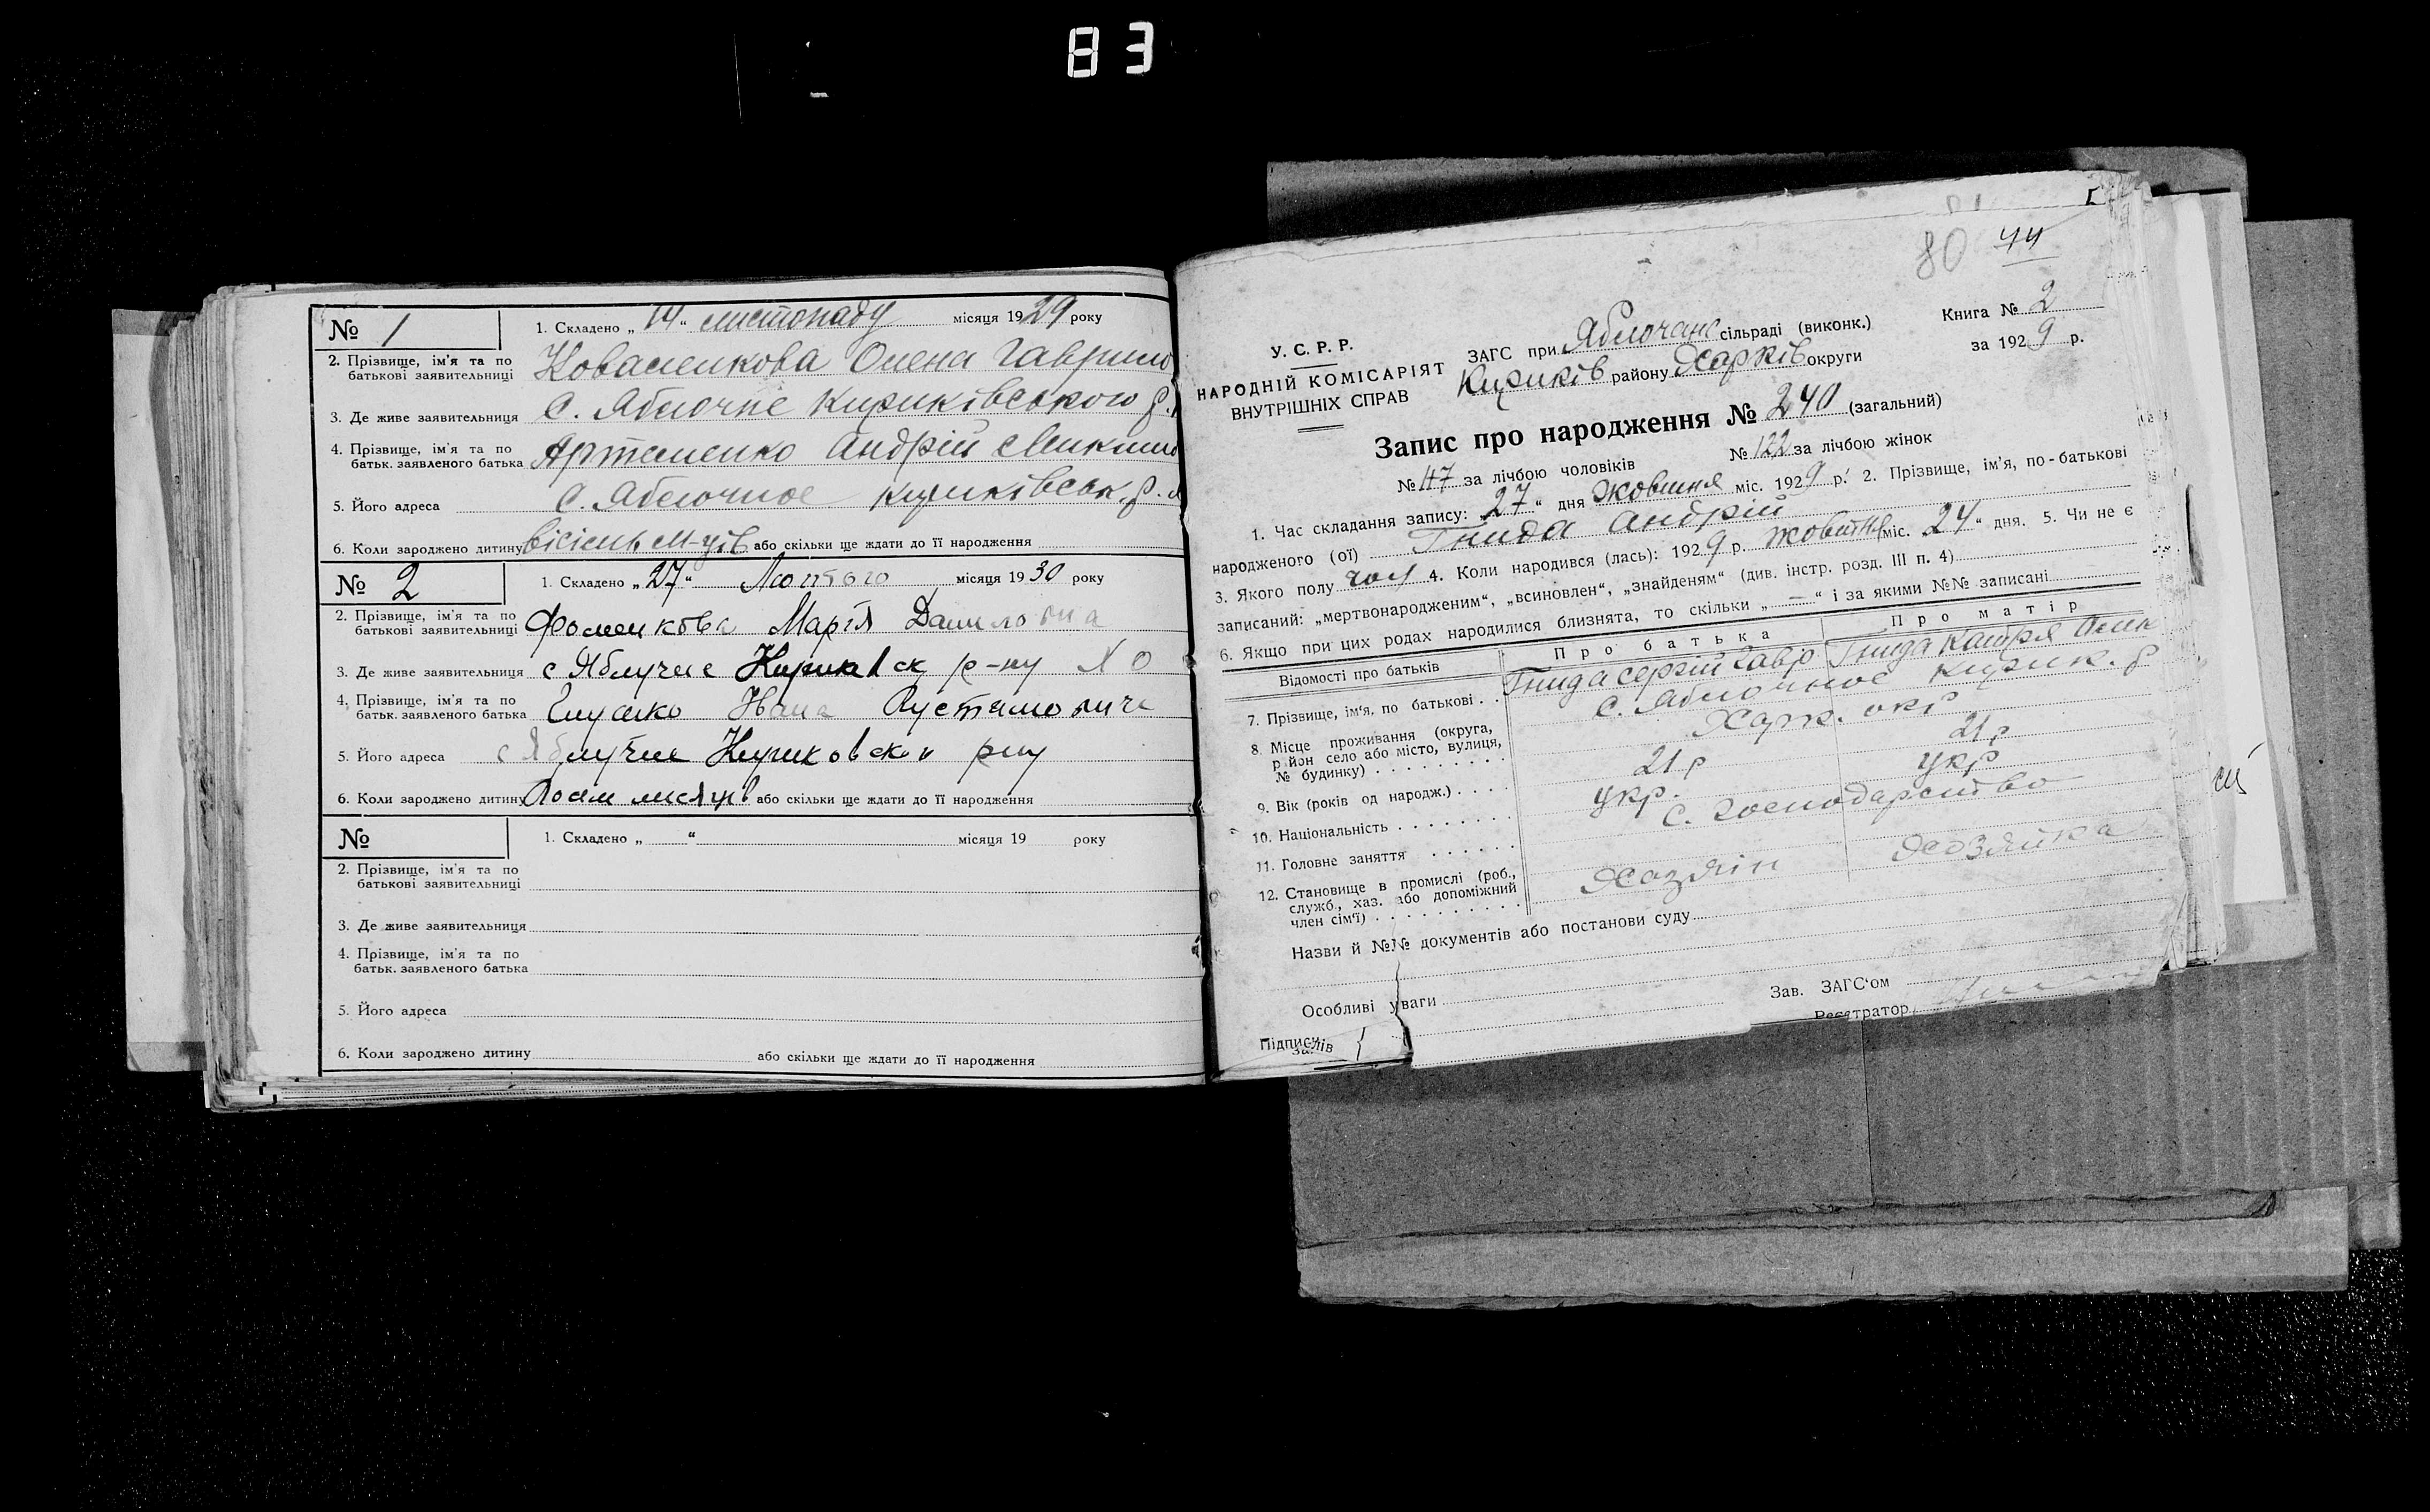 83
№ 1
1. Складено „ 14 “ листопаду місяця 1929 року
2. Прізвище, ім'я та по батькові заявительниці Коваленкова Олена Гаврило
3. Де живе заявительниця с. Яблочне Кириківського р.
4. Прізвище, ім'я та по батьк. заявленого батька Артеменко Андрій
5. Його адреса С. Яблочное Кириківськ. р.
6. Коли зароджено дитину вісімь м-ців або скільки ще ждати до її народження
№ 2
1. Складено „ 27 “ Лютого місяця 1930 року
2. Прізвище, ім'я та по батькові заявительниці Фоменкова Марія Даниловна
3. Де живе заявительниця с Яблучне р-ну Х О
4. Прізвище, ім'я та по батьк. заявленого батька Ивана
5. Його адреса с Яблучне рну
6. Коли зароджено дитину місяців або скільки ще ждати до її народження
№
1. Складено „ “ місяця 19 року
2. Прізвище, ім'я та по батькові заявительниці
3. Де живе заявительниця
4. Прізвище, ім'я та по батьк. заявленого батька
5. Його адреса
6. Коли зароджено дитину або скільки ще ждати до її народження
80 44
У. С. Р. Р.
НАРОДНІЙ КОМІСАРІЯТ
ВНУТРІШНІХ СПРАВ
ЗАГС при Яблочанс сільраді (виконк.)
Кириків району Харків округи
Книга № 2
за 1929 р.
Запис про народження № 240 (загальний)
№ 117 за лічбою чоловіків № 122 за лічбою жінок
1. Час складання запису: „27“ дня Жовтня міс. 1929 р. 2. Прізвище, ім'я, по-батькові
народженого (ої) Гнида Андрій
3. Якого полу чол 4. Коли народився (лась): 1929 р. жовтня міс. 24“ дня. 5. Чи не є
записаний: „мертвонародженим“, „всиновлен“, „знайденям“ (див. інстр. розд. III п. 4)
6. Якщо при цих родах народилися близнята, то скільки „ — “ і за якими №№ записані
Відомості про батьків Про батька Про матір
7. Прізвище, ім'я, по батькові . . Гнида Сергій Гавр Гнида Катря
8. Місце проживання (округа, район село або місто, вулиця, № будинку) с. Яблочное Кирик. р
Харк. окр
9. Вік (років од народж.) 21 р 21 р
10. Національність укр. укр
11. Головне заняття с. господарство
12. Становище в промислі (роб., служб., хаз. або допоміжний член сім'ї) Хазяін Хозяйка
Назви й №№ документів або постанови суду
Особливі уваги
Зав. ЗАГС'ом
Реєстратор
Підписи